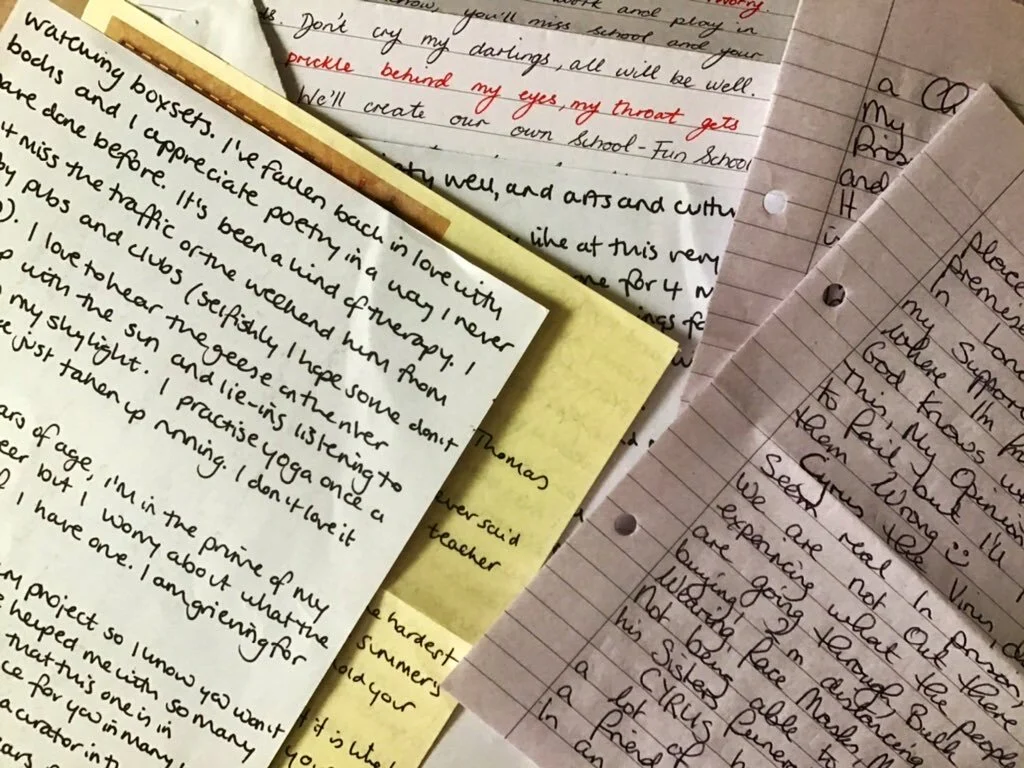 watching boxsets. I've fallen back in love with
books and I appreciate poetry in a way I never
have done before. It's been a kind of therapy. I
miss the traffic or the weekend hum from
pubs and clubs (selfishly I hope some don't
I love to hear the geese on the river
with the sun and lie-ins listening to
my skylight. I practise yoga once a
just taken up running. I don't love it
of age, I'm in the prime of my
but I worry about what the
I have one. I am grieving for
project so I know you won't
helped me with so many
that this one is in
for you in many
a curator in
and play in
you'll miss school and your
Don't cry my darlings, all will be well.
prickle behind my eyes, my throat gets
We'll create our own School - Fun School
well, and arts and
like at this very
for 4
Thomas
said
teacher
hardest
summer's
old your
it is
a
My
and
It
place
In
my
where I'm
God Knows
This, My
to Fail but I'll
them Wrong ☺
Cyrus the Virus
Seen real In person,
we are not Out there
experiencing what the people
are going through, Bulk
buying, 2m distancing
Wearing Face Masks,
Not being able to
his Sisters
CYRUS
a lot of
a friend
In
an